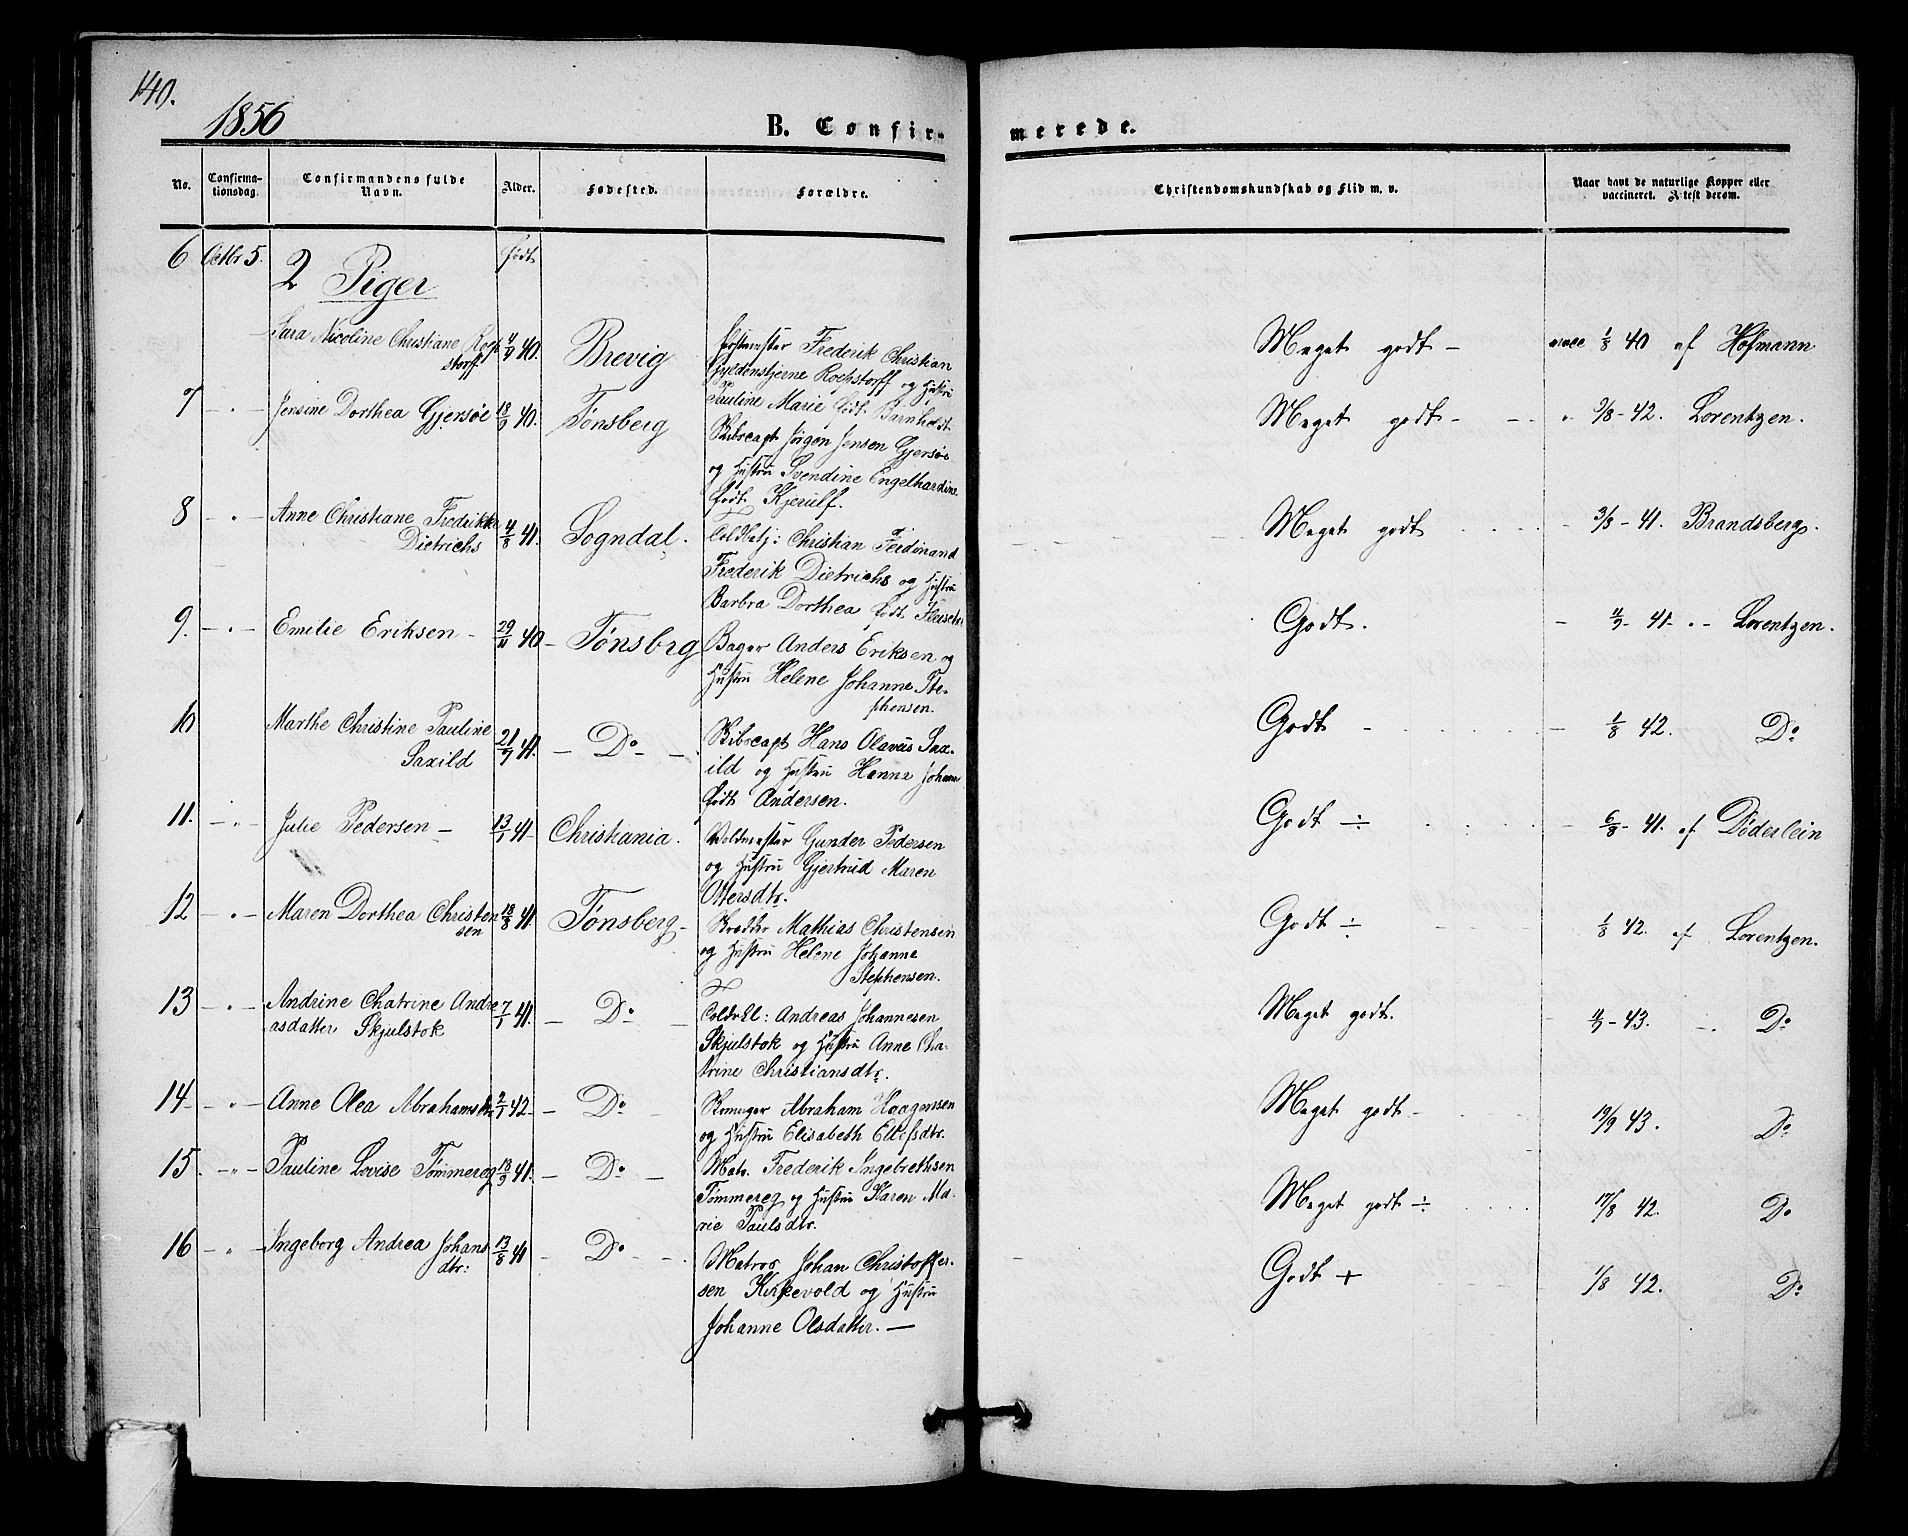 140.
1856
B. Confir-
merede.
No.
Confirma-
tionsdag.
Confirmandens fulde
Navn.
Alder.
Fødested.
Forældre.
Christendomskundskab og Flid m. v.
Naar havt de naturlige Kopper eller
vaccineret. Attest derom.
6 Octbr 5. 2 Piger født
Sara Nicoline Christiane Roep
storff 4/9 40. Brevig
Postmester Frederik Christian
Gyldenstjerne Roepstorff og Hustru
Pauline Marie født Barnholdt
Meget godt - vacc 1/8 40 af Hofmann
7 - " - Jensine Dorthea Gjersøe 18/9 40. Tønsberg
Skibscapt Jörgen Jensen Gjersøe
og Hustru Svendine Engelhardine
født Kjerulf.
Meget godt - " 9/8 - 42. Lorentzen.
8 - " - Anne Christiane Fredrikke
Dietrichs 4/8 41. Sogndal.
Toldbetj: Christian Ferdinand
Frederik Dietrichs og Hustru
Barbra Dorthea født Fleischer
Meget godt - 3/8 - 41. Brandsberg.
9. - " - Emilie Eriksen - 29/11 40 - Tønsbrg
Bager Anders Eriksen og
Hustru Helene Johanne Ste-
phensen.
Godt. - 4/9 - 41 - " - Lorentzen.
10 Marthe Christine Pauline
Saxild 21/9 41. - Do -
Skibscapt Hans Olavus Sax-
ild og Hustru Hanna Johanne
født Andersen.
Godt - 1/8 42. Do
11. - " - Julie Pedersen - 13/1 41 Christiania.
Voldmester Gunder Pedersen
og Hustru Gjertrud Maren
Ottersdtr.
Godt ÷ - 6/8 - 41. af Döderlein
12 - " - Maren Dorthea Christen
sen 18/8 41. Tønsberg -
Skrædder Mathias Christensen
og Hustru Helene Johanne
Stephensen.
Godt ÷ 1/8 42. af Lorentzen.
13 - " - Andrine Chatrine Andre
asdatter Skjulstok 7/1 41. - Do -
Andreas Johannesen
Skjulstok og Hustru Anne Cha-
trine Christiansdtr.
Meget godt. 4/9 - 43. - " Do
14 - " - Anne Olea Abrahamsdtr 2/1 42 - Do -
Skomager Abraham Haagensen
og Hustru Elisabeth Ellefsdtr.
Meget godt - 19/9 43. Do
15. - " - Pauline Lovise Tømmereg 18/9 41. - Do -
Matr. Frederik Ingebrethsen
Tømmereg og Hustru Karen Ma-
rie Paulsdtr.
Meget godt ÷ 17/8 42. Do
16 - " - Ingeborg Andrea Johans
dtr: 13/8 41 - Do -
Matros Johan Christoffer-
sen Kirkevold og Hustru
Johanne Olsdatter. -
Godt + 1/8 42. Do